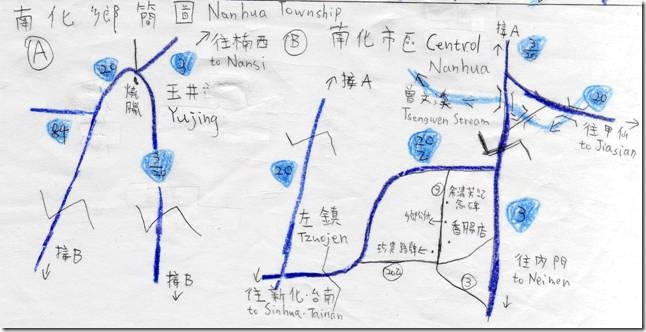 南化鄉簡圖 Nanhua Township
Ⓐ
20
3
往楠西
to Nansi
燒臘
玉井
Yujing
84
3/20
接B
接B
Ⓑ 南化市區 Central
Nanhua
接A
3/20
曾文溪
Tsengwen Stream
20
往甲仙
to Jiasian
接A
20
20/2
②
香腸店
3
左鎮
Tzuojen
202
③
往內門
to Neimen
往新化‧台南
to Sinhua‧Tainan